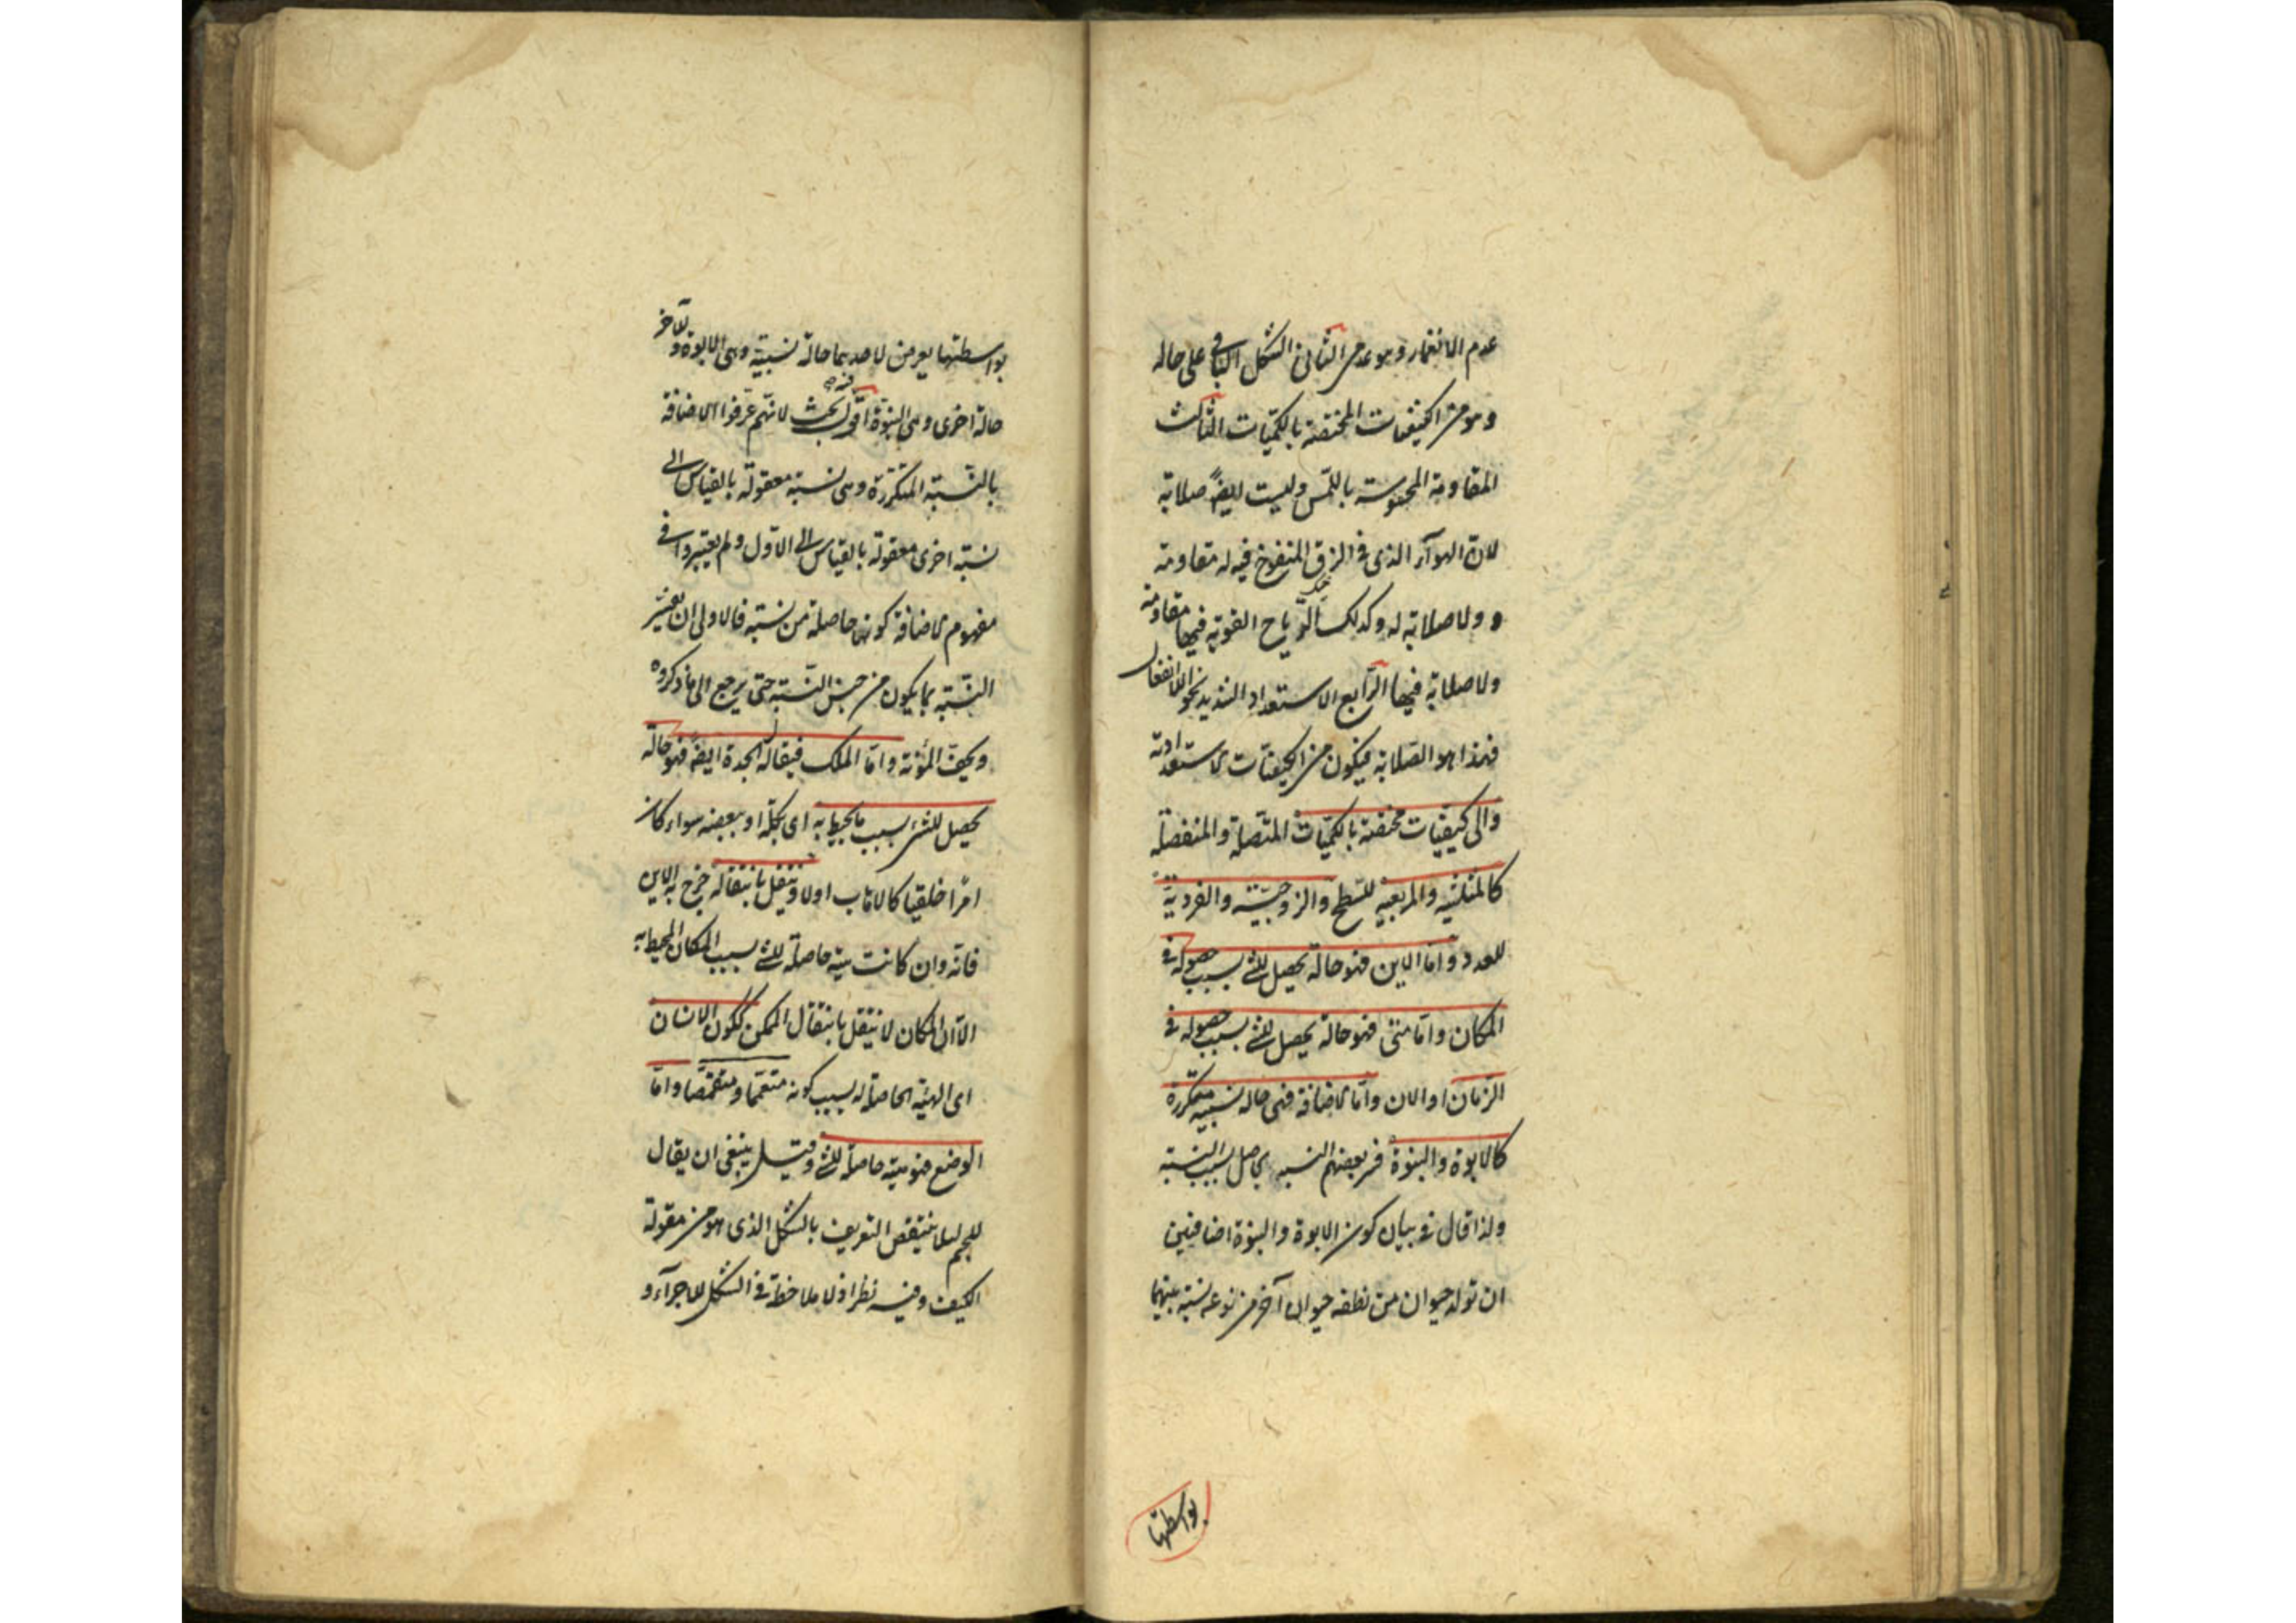 عدم الانغمار وهو عدمى الثانى الشكل الباقى على حاله
وهو من الكيفيات المختصة بالكميات الثالث
المقاومة المحسوسة باللمس وليست ايضً صلابة
لان الهوآء الذى فى الزق المنفوخ فيه له مقاومة
و ولا صلابة له وكذلك الرياح القوية فيها مقاومة
ولا صلابة فيها الرابع الاستعداد الشديد نحو اللاانفعال
فهذا هو الصلابة فيكون من الكيفيات الاستعدادية
والى كيفيات مختصة بالكميات المتصلة والمنفصلة
كالمثلثية والمربعية للسطح والزوجية والفردية
للعدد واما الاين فهو حالة يحصل للشئ بسبب حصوله فى
المكان واما متى فهو حالة يحصل للشئ بسبب حصوله فى
الزمان او الان واما الاضافة فهى حالة نسبية متكررة
كالابوة والبنوة فسر بعضهم النسبية بحاصل بسبب النسبة
ولذا قال فى بيان كون الابوة والبنوة اضافتين
ان تولد حيوان من نطفة حيوان آخر من نوعه نسبة بينهما
بواسطتها
بواسطتها يعرض لاحدهما حالة نسبية وهى الابوة وللآخر
حالة اخرى وهى البنوة اقول فيه بحث لانهم عرفوا الاضافة
بالنسبة المتكررة وهى نسبة معقولة بالقياس الى
نسبة اخرى معقولة بالقياس الى الاول ولم يعتبروا فى
مفهوم الاضافة كونها حاصلة من نسبة فالاولى ان يفسر
النسبية بما يكون من جنس النسبة حتى يرجع الى ما ذكروه
ويخف المؤنة واما الملك فيقال له الجدة ايضً فهو حالة
يحصل للشئ بسبب ما يحيط به اى بكله او ببعضه سواء كان
امرًا خلقيا كالاهاب اولا وينتقل بانتقاله خرج به الاين
فانه وان كانت هيئة حاصلة للشئ بسبب المكان المحيط به
الا ان المكان لا ينتقل بانتقال المتمكن ككون الانسان
اى الهيئة الحاصلة له بسبب كونه متعمما ومتقمصا واما
الوضع فهو هيئة حاصلة للشئ وقيل ينبغى ان يقال
للجسم لئلا ينتقض التعريف بالشكل الذى هو من مقولة
الكيف وفيه نظر اذ لا ملاحظة فى الشكل للاجزآء و